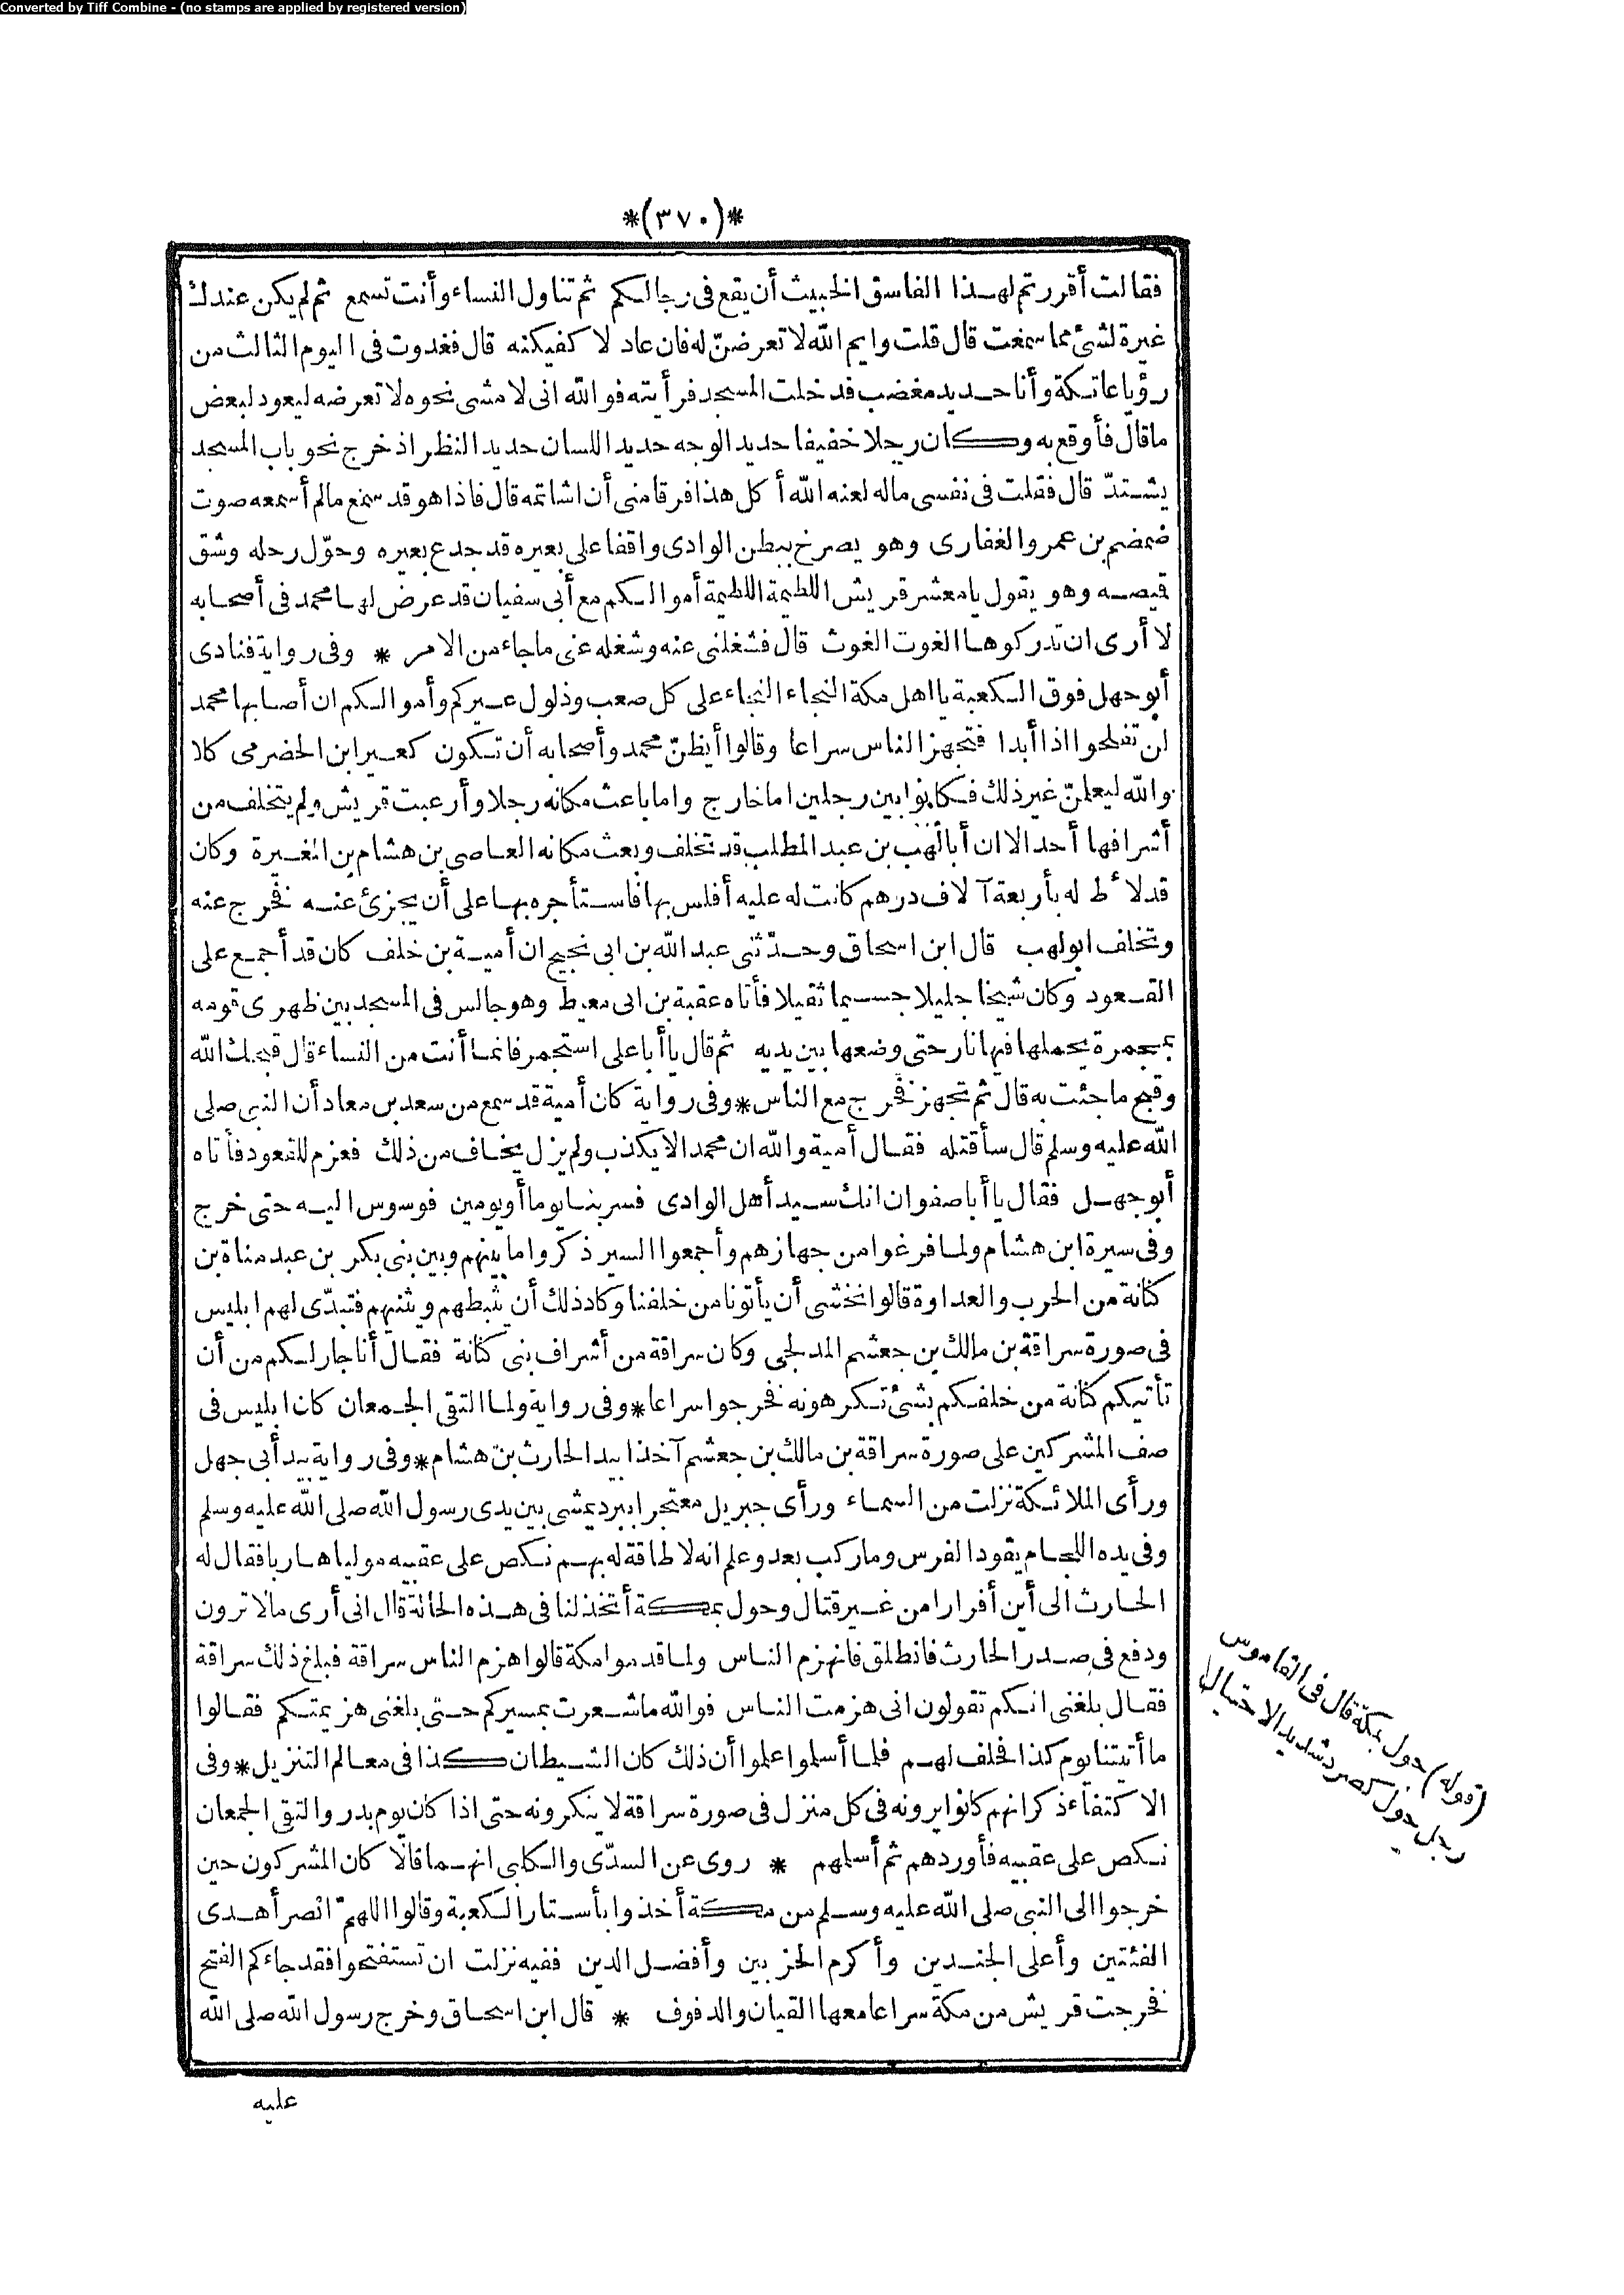 Converted by Tiff Combine - (no stamps are applied by registered version)
*(٣٧٠)*
فقالت أقررتم لهذا الفاسق الخبيث أن يقع فى رجالكم ثم تناول النساء وأنت تسمع ثم لم يكن عندك
غيرة لشئ مما سمعت قال قلت وايم الله لا تعرضنّ له فان عاد لاكفيكنه قال فغدوت فى اليوم الثالث من
رؤيا عاتكة وأنا حديد مغضب فدخلت المسجد فرأيته فوالله انى لامشى نحوه لا تعرضه ليعود لبعض
ما قال فأوقع به وكان رجلا خفيفا حديد الوجه حديد اللسان حديد النظر اذ خرج نحو باب المسجد
يشتدّ قال فقلت فى نفسى ماله لعنه الله أكل هذا فرقا منى أن اشاتمه قال فاذا هو قد سمع مالم أسمعه صوت
ضمضم بن عمرو الغفارى وهو يصرخ ببطن الوادى واقفا على بعيره قد جدع بعيره وحوّل رحله وشق
قميصه وهو يقول يا معشر قريش اللطيمة اللطيمة أموالكم مع أبى سفيان قد عرض لها محمد فى أصحابه
لا أرى ان تدركوها الغوث الغوث قال فشغلنى عنه وشغله عنى ما جاء من الامر * وفى رواية فنادى
أبو جهل فوق الكعبة يا اهل مكة النجاء النجاء على كل صعب وذلول عيركم وأموالكم ان أصابها محمد
لن تفلحوا اذا أبدا فتجهز الناس سراعا وقالوا أيظنّ محمد وأصحابه أن تكون كعير ابن الحضرمى كلا
والله ليعلمنّ غير ذلك فكانوا بين رجلين اما خارج واما باعث مكانه رجلا وأرعبت قريش ولم يتخلف من
أشرافها أحد الا ان أبا لهب بن عبد المطلب قد تخلف وبعث مكانه العاصى بن هشام بن المغيرة وكان
قد لاط له بأربعة آلاف درهم كانت له عليه أفلس بها فاستأجره بها على أن يجزئ عنه فخرج عنه
وتخلف ابو لهب قال ابن اسحاق وحدّثنى عبد الله بن ابى نجيح ان أمية بن خلف كان قد أجمع على
القعود وكان شيخا جليلا جسيما ثقيلا فأتاه عقبة بن ابى معيط وهو جالس فى المسجد بين ظهرى قومه
بمجمرة يحملها فيها نار حتى وضعها بين يديه ثم قال يا أبا على استجمر فانما أنت من النساء قال قبحك الله
وقبح ما جئت به قال ثم تجهز فخرج مع الناس * وفى رواية كان أمية قد سمع من سعد بن معاد أن النبى صلى
الله عليه وسلم قال سأقتله فقال أمية والله ان محمدا لا يكذب ولم يزل يخاف من ذلك فعزم للقعود فأتاه
أبو جهل فقال يا أبا صفوان انك سيد أهل الوادى فسر بنا يوما أو يومين فوسوس اليه حتى خرج
وفى سيرة ابن هشام ولما فرغوا من جهازهم وأجمعوا السير ذكروا ما بينهم وبين بنى بكر بن عبد مناة بن
كنانة من الحرب والعداوة قالوا نخشى أن يأتونا من خلفنا وكاد ذلك أن يثبطهم ويثنيهم فتبدّى لهم ابليس
فى صورة سراقة بن مالك بن جعشم المدلجى وكان سراقة من أشراف بنى كنانة فقال أنا جار لكم من أن
تأتيكم كنانة من خلفكم بشئ تكرهونه فخرجوا سراعا * وفى رواية ولما التقى الجمعان كان ابليس فى
صف المشركين على صورة سراقة بن مالك بن جعشم آخذا بيد الحارث بن هشام * وفى رواية بيد أبى جهل
ورأى الملائكة نزلت من السماء ورأى جبريل معتجرا ببرد يمشى بين يدى رسول الله صلى الله عليه وسلم
وفى يده اللجام يقود الفرس وما ركب بعد وعلم انه لا طاقة له بهم نكص على عقبيه موليا هاربا فقال له
الحارث الى أين أفرارا من غير قتال وحول بمكة أتخذلنا فى هذه الحالة قال انى أرى مالا ترون
ودفع فى صدر الحارث فانطلق فانهزم الناس ولما قدموا مكة قالوا هزم الناس سراقة فبلغ ذلك سراقة
فقال بلغنى انكم تقولون انى هزمت الناس فوالله ما شعرت بمسيركم حتى بلغنى هزيمتكم فقالوا
ما أتيتنا يوم كذا فحلف لهم فلما أسلموا علموا أن ذلك كان الشيطان كذا فى معالم التنزيل * وفى
الاكتفاء ذكر انهم كانوا يرونه فى كل منزل فى صورة سراقة لا ينكرونه حتى اذا كان يوم بدر والتقى الجمعان
نكص على عقبيه فأوردهم ثم أسلمهم * روى عن السدّى والكلبى انهما قالا كان المشركون حين
خرجوا الى النبى صلى الله عليه وسلم من مكة أخذوا بأستار الكعبة وقالوا اللهمّ انصر أهدى
الفئتين وأعلى الجندين وأكرم الحزبين وأفضل الدين ففيه نزلت ان تستفتحوا فقد جاءكم الفتح
فخرجت قريش من مكة سراعا معها القيان والدفوف * قال ابن اسحاق وخرج رسول الله صلى الله
عليه
(قوله) حول بمكة قال فى القاموس
رجل حول كصرد شديد الاحتيال